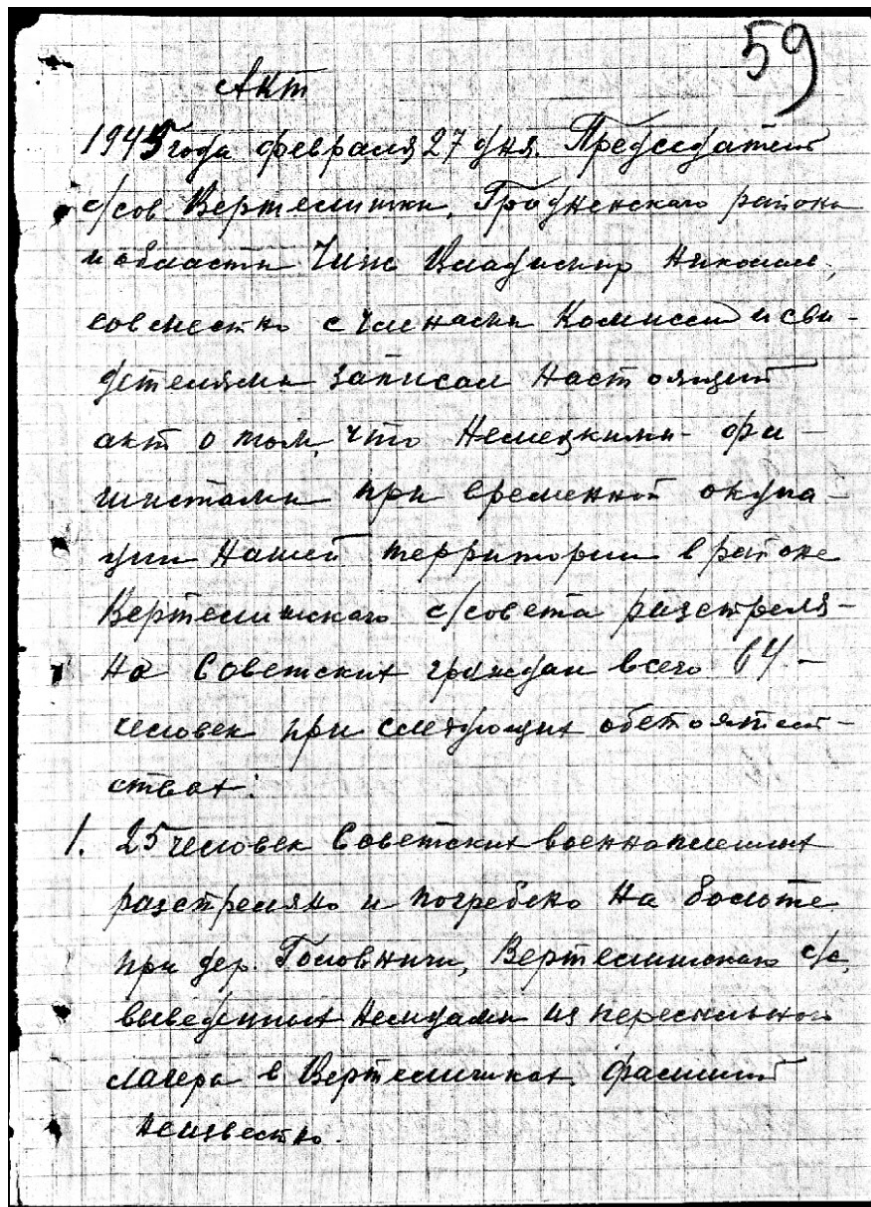 59
Акт
1945 года февраля 27 дня. Председатель
с/сов Вертелишки, Гродненского района
и области Чиж Владимир Николаев,
совместно с членами Комиссии и сви-
детелями записал настоящий
акт о том, что Немецкими фа-
шистами при временной окупа-
ции Нашей территории в районе
Вертелишского с/совета разстреля-
но Советских граждан всего 64 -
человек при следующих обстоятель-
ствах:
1. 25 человек Советских военнопленных
разстреляно и погребено на болоте
при дер. Головничи, Вертелишского с/с,
выведенных немцами из пересыльного
лагеря в Вертелишках, фамилий
неизвестно.